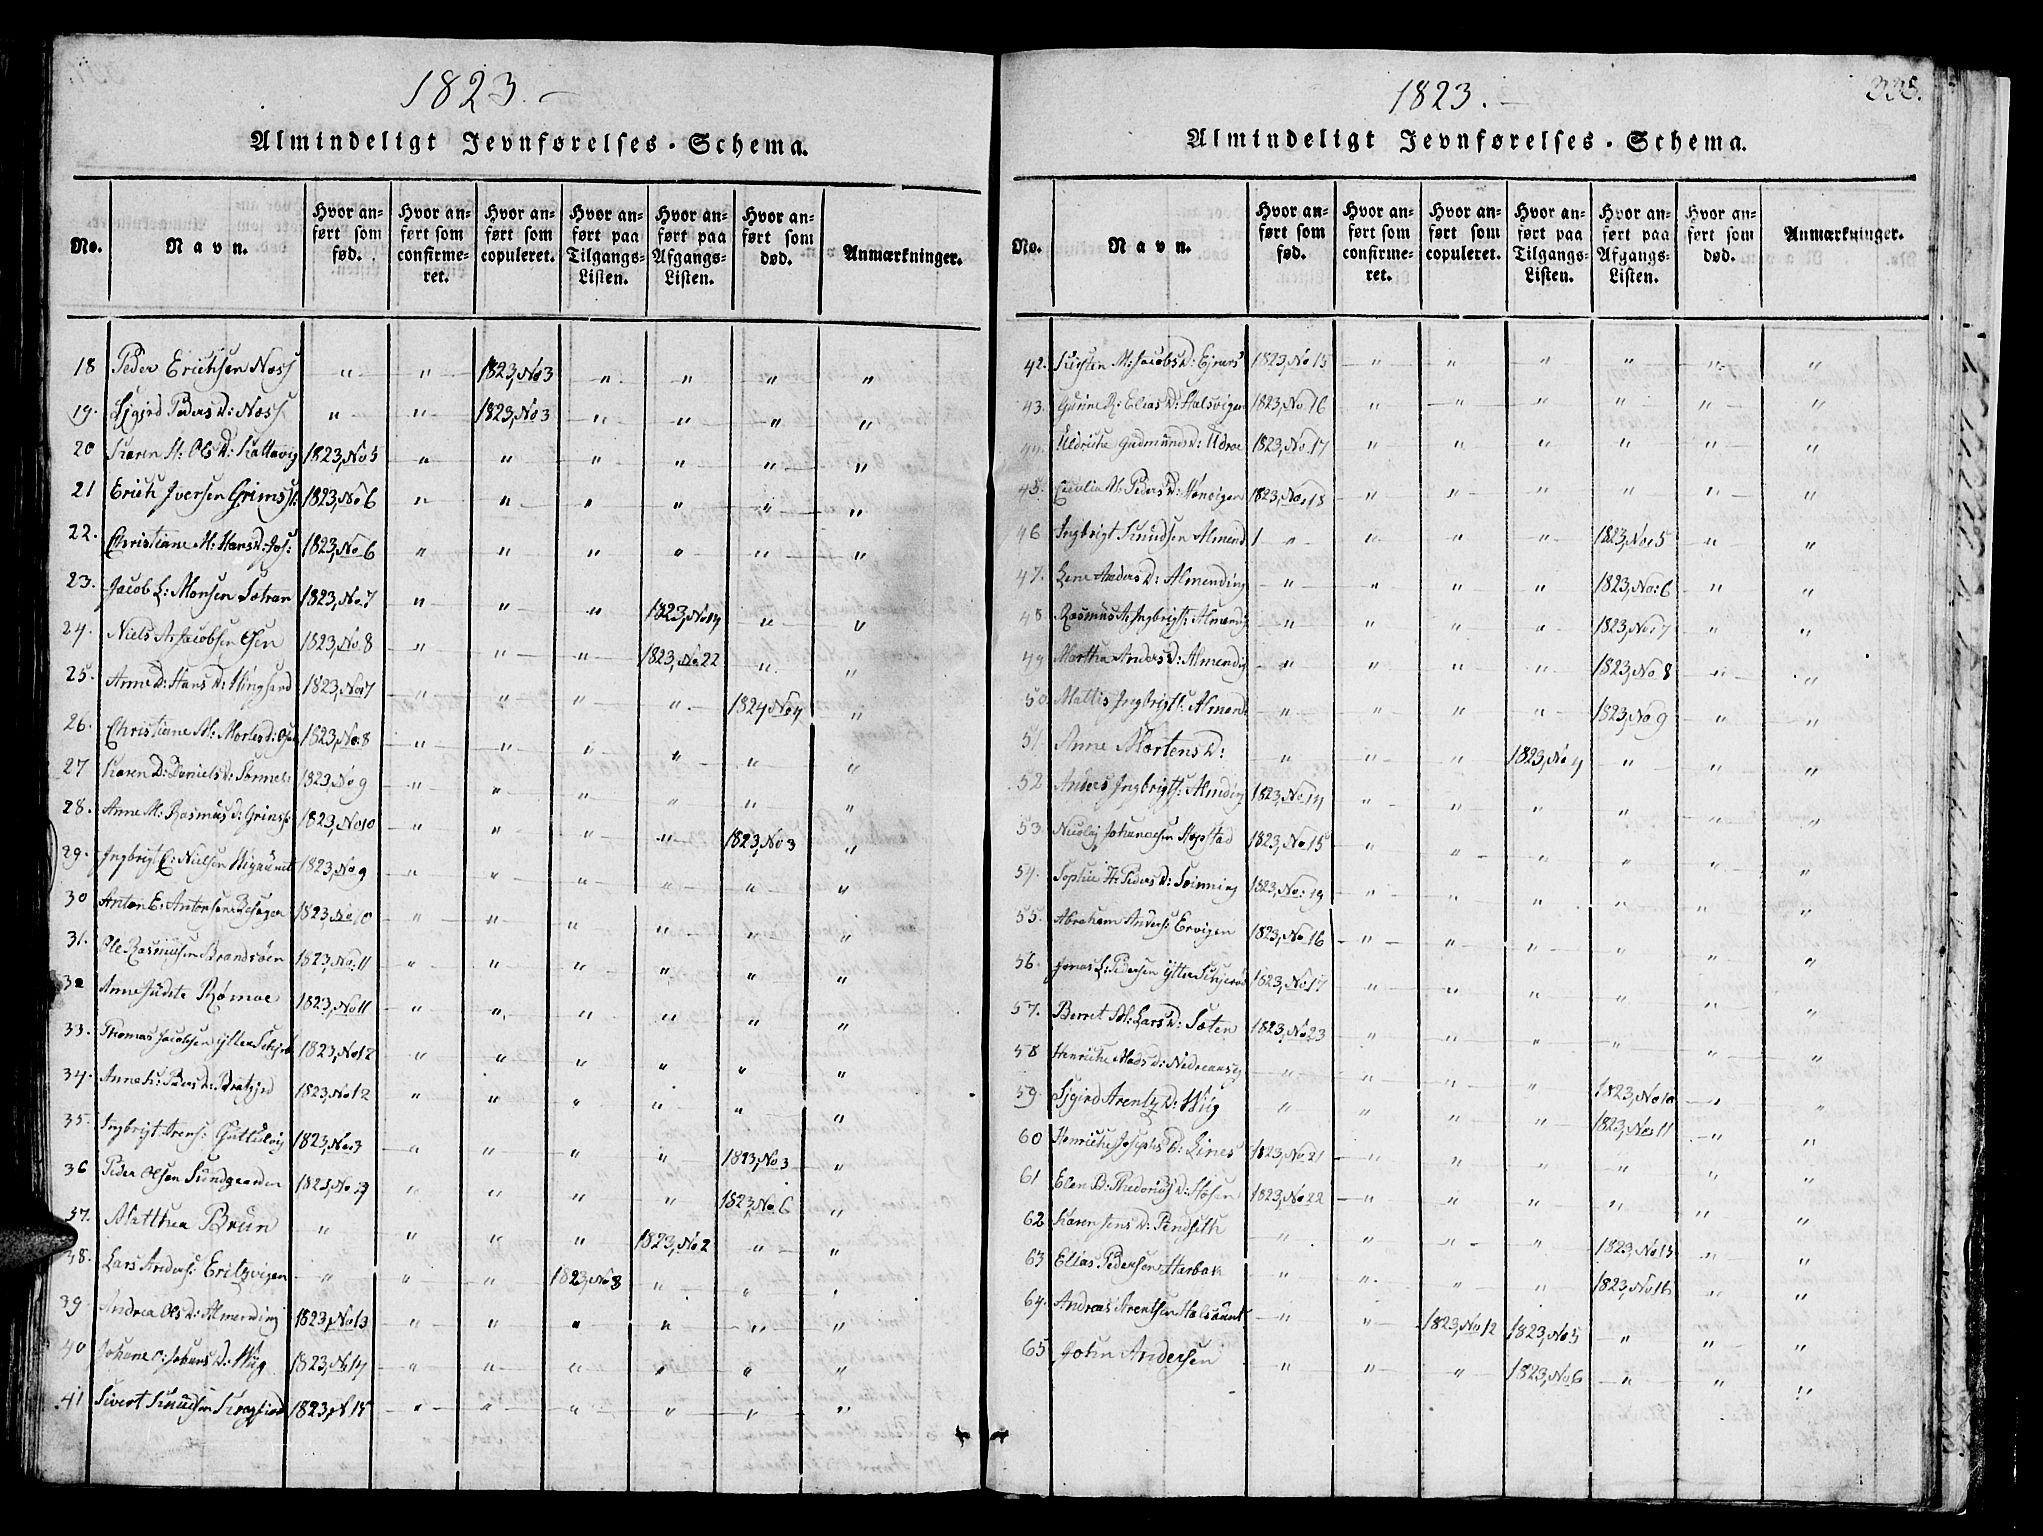 1823. –
Almindeligt Jevnførelses-Schema.
No. Navn. Hvor anført som fød. Hvor anført som confirmeret. Hvor anført som copuleret. Hvor anført paa Tilgangs-Listen. Hvor anført paa Afgangs-Listen. Hvor anført som død. Anmærkninger.
18 Peder Erichsen Næss " " 1823, No 3 " " " "
19. Sigird Peders D: Næss " " 1823, No 3 " " " "
20 Karen M: Ols D: Kattavig 1823, No 5 " " " " " "
21 Erich Iversen Grims 1823, No 6 " " " " " "
22. Christiane M: Hans D: 1823, No 6 " " " " " "
23. Jacob L: Monsen Sætran 1823, No. 7 " " " 1823, No 14 " "
24. Niels A: Jacobsen Osen 1823, No. 8 " " " 1823, No. 22 " "
25. Anne D: Hans D: 1823, No 7 " " " " 1824 No 4 "
26. Christiane M: Mortes D: 1823, No. 8 " " " " " "
27 Karen D: Daniels D: 1823, No 9 " " " " " "
28. Anne M: Rasmus D: 1823, No 10 " " " " 1823, No 3 "
29. Ingbrigt E: Nielsen 1823, No 9 " " " " " "
30 Anton E: Antonsen 1823, No. 10 " " " " " "
31. Ole Rasmusen Brandsøen 1823, No. 11 " " " " " "
32 Anne Rømoe 1823, No 11 " " " " " "
33. Thomas Jacobsen Ytter 1823, No 12 " " " " " "
34. Anne Peders D: 1823, No 12 " " " " " "
35. Ingbrigt 1823, No 3 " " " " 1823, No 3 "
36 Peder Olsen Sundgaarden 1823, No " " " " 1823, No. 6 "
37. Matthea Brun " " " " 1823, No 2 " "
38. Lars Anders: Eritzvigen " " " 1823, No 8 " " "
39 Andrea Ols D: Almending 1823, No 13 " " " " " "
40 Johane O: Johans D: Wiig 1823, No 14 " " " " " "
41 Sivert Knudsen 1823, N 15 " " " " " "
335.
1823. –
Almindeligt Jevnførelses-Schema.
No. Navn. Hvor anført som fød. Hvor anført som confirmeret. Hvor anført som copuleret. Hvor anført paa Tilgangs-Listen. Hvor anført paa Afgangs-Listen. Hvor anført som død. Anmærkninger.
42. Kirsten M: Jacobs D: 1823, No 15 " " " " " "
43. Gunne Elias D: Halsvigen 1823, No. 16 " " " " " "
44. Uldriche Gudmunds D: 1823, No. 17 " " " " " "
45. Cecilia M: Peders D: 1823, No 18 " " " " " "
46 Ingbrigt Knudsen Almend " " " " 1823, No 5 " "
47. Lene Anders D: Almending " " " " 1823, No: 6 " "
48. Rasmus A: Ingbrigts: " " " " 1823, No. 7 " "
49. Martha Anders D: " " " " 1823, No 8 " "
50. Mattis Ingbrigts: Almend " " " " 1823, No 9 " "
51 Anne Mortens D: " " " 1823, No 4 " " "
52 Anders Ingbrigts: 1823, No. 14 " " " " " "
53. Nicolaj Johanesen Hopstad 1823, No. 15 " " " " " "
54. Sophie H: Peders D: 1823, No: 19 " " " " " "
55. Abraham Anders: Ervigen 1823, No 16 " " " " " "
56. Jonas L: Pedersen Ytter 1823, No. 17 " " " " " "
57. Berret Lars D: Sæten 1823, No. 23 " " " " " "
58 Henriche Mads D: " " " " 1823, No 10 " "
59. Sigird Arentz D: Wiig " " " " 1823, No 11 " "
60 Henriche Josephs D: Lines 1823, No. 21 " " " " " "
61 Elen B: D: Hosen 1823, No. 22 " " " " " "
62 Karen Jens D: " " " " 1823, No 15 " "
63 Elias Pedersen Harbak " " " " 1823, No 16 " "
64. Andreas Arentsen " " 1823, No 12 1823, No 5 " " "
65 John Andersen " " " 1823, No. 6 " " "